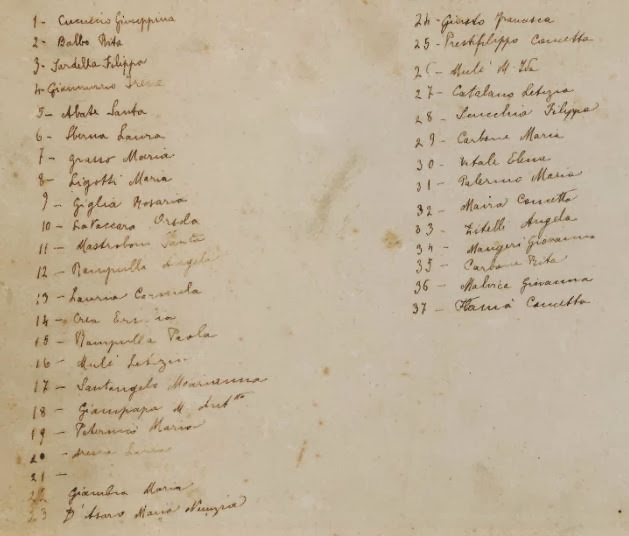 1- Cuccio Giuseppina
2- Balbo Rita
3- Sardella Filippa
4- Giammarino Irene
5- Abate Santa
6- Sberna Laura
7- Grasso Maria
8- Ligotti Maria
9- Giglia Rosaria
10- La Vaccara Orsola
11- Mastroboni Santa
12- Rampulla Angela
13- Lauria Carmela
14- Crea
15- Rampulla Paola
16- Mulè Letizia
17- Santangelo Marianna
18- Giampapa M. Ant.tta
19- Paternicò Maria
20-
21-
22 Giambra Maria
23 D'Asaro Maria Nunzia
24- Giusto Francesca
25- Prestifilippo Concetta
26- Mulè M.
27- Catalano Letizia
28- Filippa
29- Carbone Maria
30- Vitale Elena
31- Palermo Maria
32- Maira Concetta
33- Zitelli Angela
34- Maugeri Giovanna
35- Carbone Rita
36- Malvica Giovanna
37- Concetta